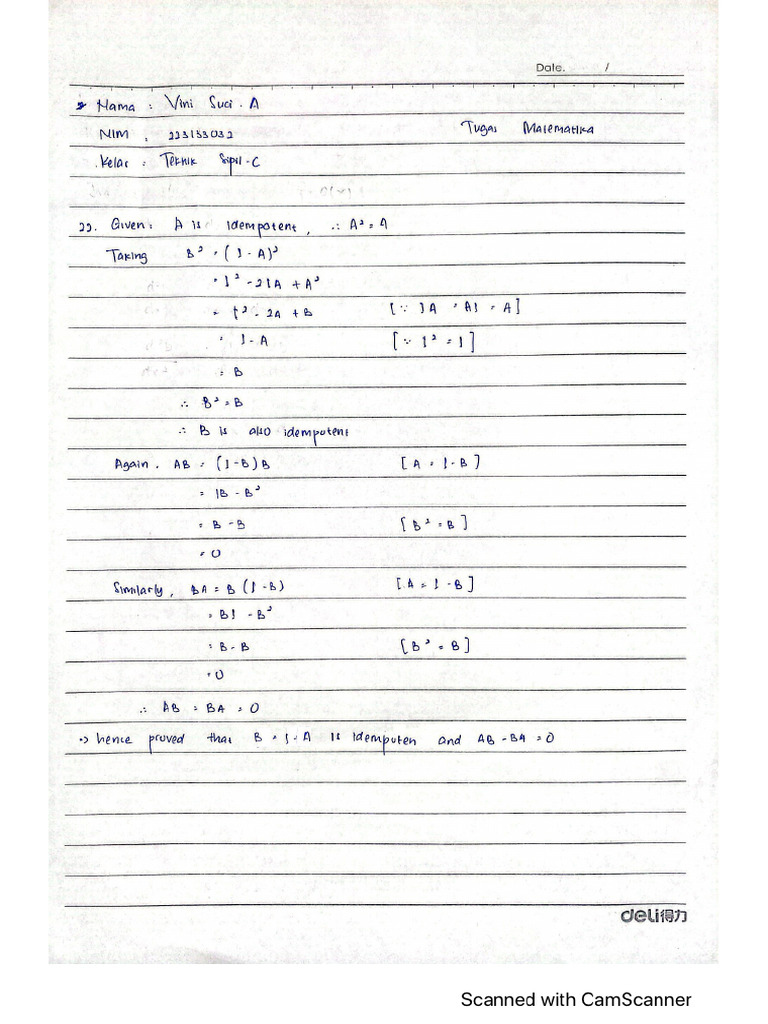 Date. /
Nama : Vini Suci . A
NIM : 223133032 Tugas Matematika
Kelas : Teknik Sipil - C
22. Given: A is Idempotent, ∴ A² = A
Taking B² = (I - A)²
= I² - 2IA + A²
= I² - 2A + B [∵ IA = AI = A]
= I - A [∵ I² = I]
= B
∴ B² = B
∴ B is also idempotent
Again, AB = (I - B) B [A = I - B]
= IB - B²
= B - B [B² = B]
= 0
Similarly, BA = B (I - B) [A = I - B]
= BI - B²
= B - B [B² = B]
= 0
∴ AB = BA = 0
hence proved that B = I - A is Idempoten and AB = BA = 0
deli得力
Scanned with CamScanner